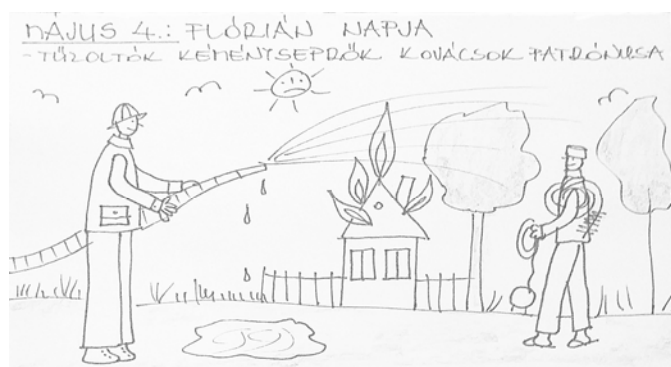 MÁJUS 4.: FLÓRIÁN NAPJA
-TŰZOLTÓK KÉMÉNYSEPRŐK KOVÁCSOK PATRÓNUSA